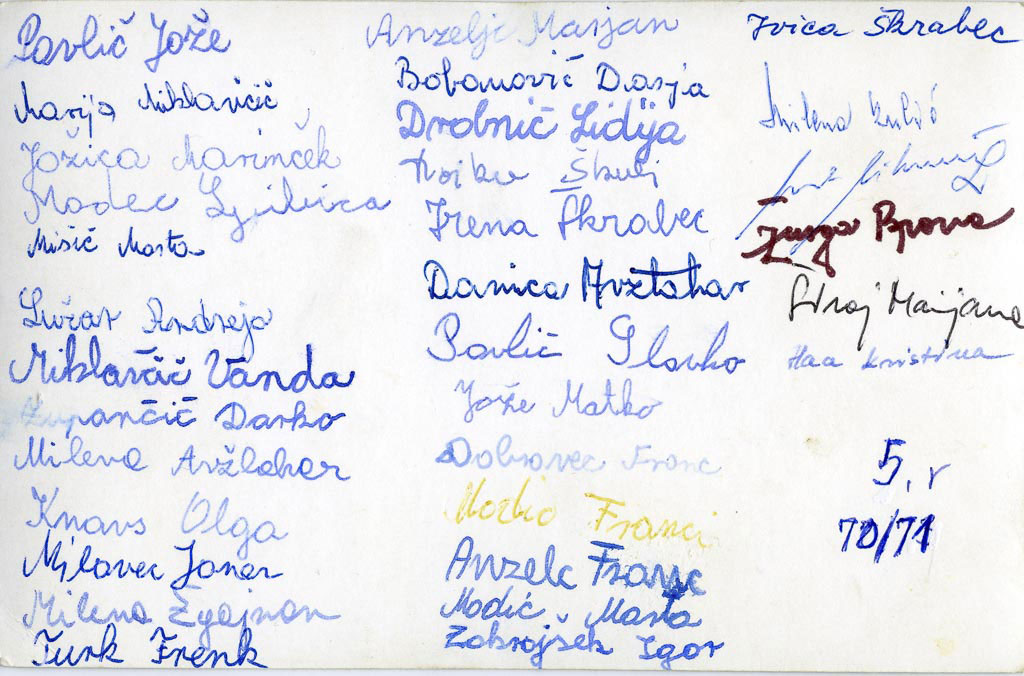 Pavlič Jože
Marija Miklavčič
Jožica Marinček
Modec Ljubica
Mišič Marta
Lužar Andreja
Miklavčič Vanda
Zupančič Darko
Milena Avžlahar
Knavs Olga
Milavec Janez
Milena Zgajnar
Turk Frenk
Anzeljc Marjan
Bobanovič Darja
Drobnič Lidija
Škulj
Irena Škrabec
Danica
Pavlič Slavko
Jože Matko
Dobravec Franc
Franci
Anzelc Franc
Modić Marta
Zakrajšek Igor
Ivica Škrabec
Milena Kulić
Marijana
Haa Kristina
5. r
70/71